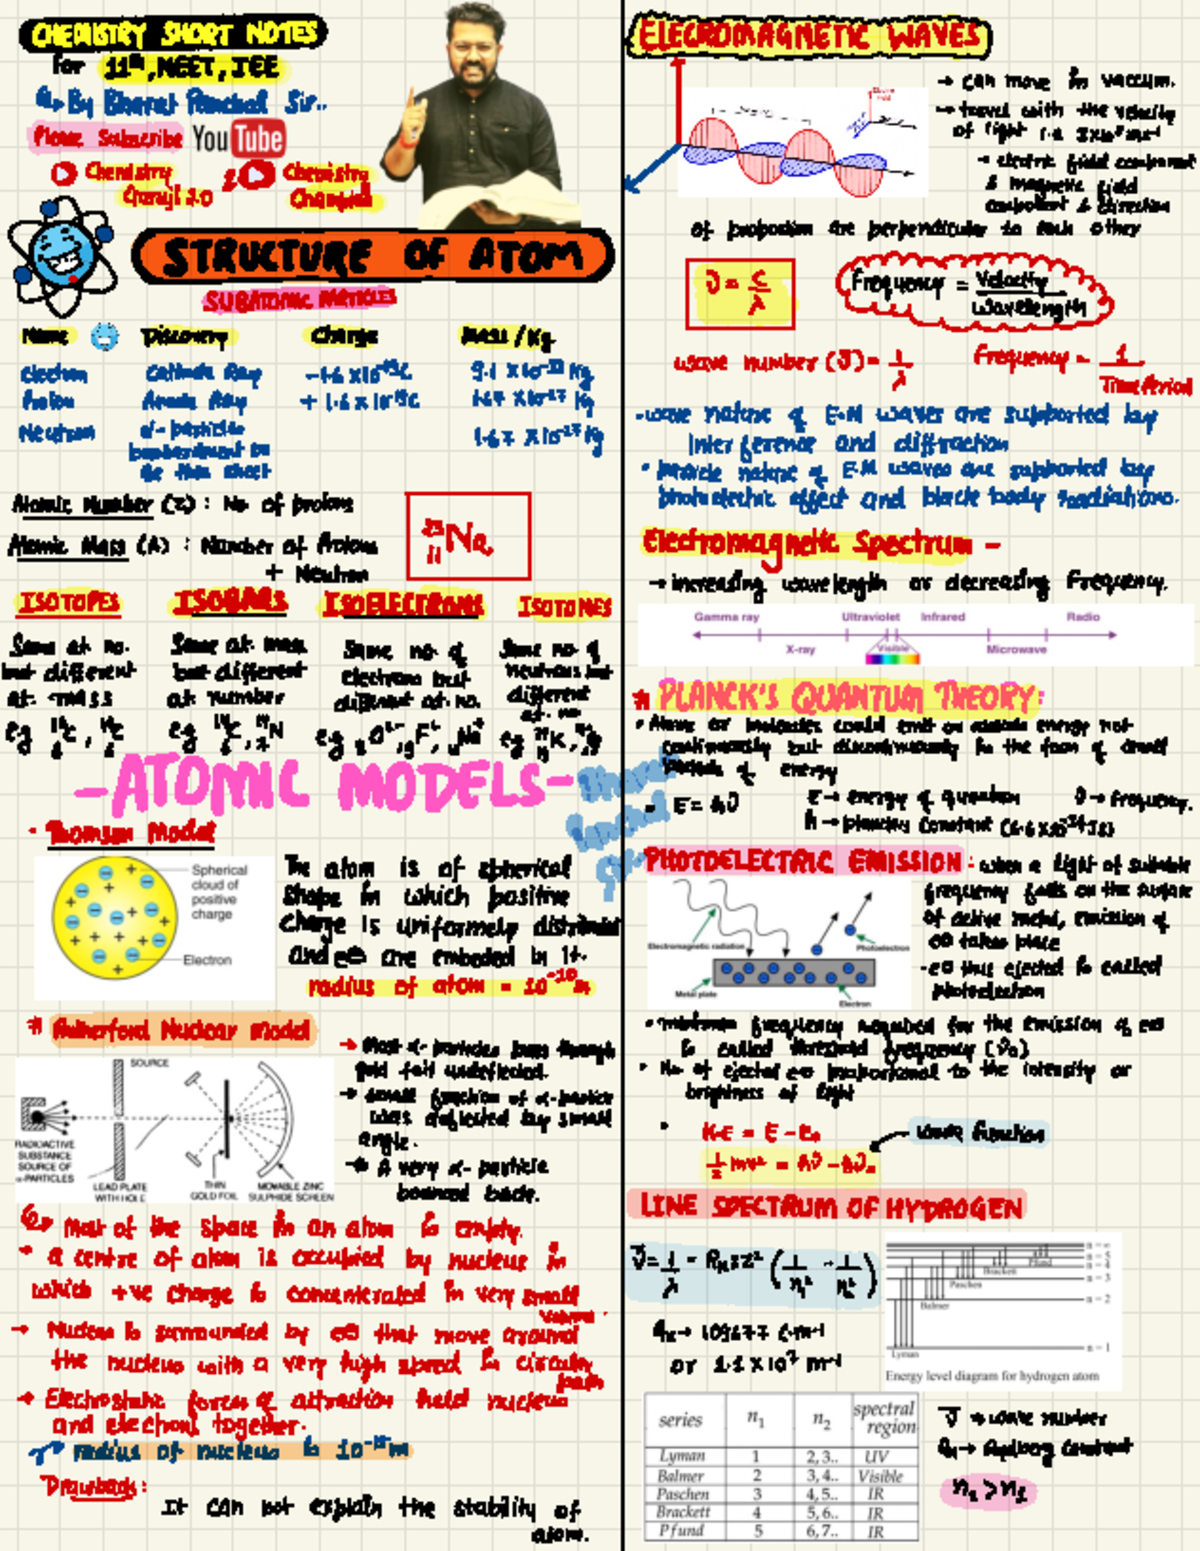 CHEMISTRY SHORT NOTES
for 11th, NEET, JEE
By Bharat Panchal Sir..
Please Subscribe YouTube
Chemistry
2.0
Chemistry
STRUCTURE OF ATOM
SUBATOMIC PARTICLES
Name Discovery Charge Mass/Kg
Electron Cathode Ray -1.6 x10-19C 9.1 x10-31 Kg
Proton Anode Ray + 1.6 x 10-19C 1.67 x10-27 Kg
Neutron α-particles 1.67 x10-27 Kg
bombardment on
Be thin sheet
Atomic Number (Z) : No of protons
Atomic Mass (A) : Number of Protons
+ Neutron
23 11 Na
ISOTOPES
Same at no.
but different
at. mass
eg
ISOBARS
Same at. mass
but different
at number
eg
ISOELECTRONS
Same no. of
electrons but
different at. no.
eg
ISOTONES
Same no. of
neutrons but
different
at. no
eg
-ATOMIC MODELS-
• Thomson Model
Spherical
cloud of
positive
charge
Electron
The atom is of spherical
shape in which positive
charge is uniformely distributed
and e⊖ are embeded in it.
radius of atom = 10-10m
# Rutherford Nuclear Model
SOURCE
RADIOACTIVE
SUBSTANCE
SOURCE OF
α-PARTICLES
LEAD PLATE
WITH HOLE
THIN
GOLD FOIL
MOVABLE ZINC
SULPHIDE SCREEN
→ Most α- particles pass through
gold foil undeflected.
→ small fraction of α-particle
was deflected by small
angle.
→ A very α- particle
bounced back.
Most of the space in an atom is empty.
• a centre of atom is occupied by nucleus in
which +ve charge is concentrated in very small
volume.
→ Nucleus is surrounded by e⊖ that move around
the nucleus with a very high speed in circular
path
→ Electrostatic forces of attraction held nucleus
and electrons together.
radius of nucleus is 10-15m
Drawback:
It can not explain the stability of
atom.
ELECROMAGNETIC WAVES
→ can move in vaccum.
→ travel with the velocity
of light i.e 3x10⁸ms-1
→ electric field component
& magnetic field
component & direction
of are perpendicular to each other
ν = c/λ
Frequency = Velocity/Wavelength
wave number (ν̄) = 1/λ
Frequency = 1/Time Period
• wave nature of E.M waves are supported by
Interference and diffraction
• particle nature of E.M waves are supported by
photoelectric effect and black body radiations.
Electromagnetic Spectrum -
→ increasing wavelength or decreasing frequency.
Gamma ray Ultraviolet Infrared Radio
X-ray Visible Microwave
# PLANCK'S QUANTUM THEORY:
• Atoms or molecules could emit or absorb energy not
continuously but discontinuously in the form of small
packets of energy
E = hν
E → energy of quantum ν → frequency.
h → plancks constant (6.6x10-34Js)
PHOTOELECTRIC EMISSION : when a light of suitable
frequency falls on the surface
of active metal, emission of
e⊖ takes place
-e⊖ thus ejected is called
photoelectron
Electromagnetic radiation
Photoelectron
Metal plate
Electron
• minimum frequency required for the emission of e⊖
is called threshold frequency (ν₀)
• No of ejected e⊖ proportional to the intensity or
brightness of light
• K.E = E - E₀
work function
½ mv² = hν - hν₀
LINE SPECTRUM OF HYDROGEN
ν̄ = 1/λ = RH x z² (1/n₁² - 1/n₂²)
RH → 109677 cm-1
or 1.1 x 10⁷ m-1
n = ∞
n = 5
n = 4
n = 3
n = 2
n = 1
Pfund
Brackett
Paschen
Balmer
Lyman
Energy level diagram for hydrogen atom
series n₁ n₂ spectral region
Lyman 1 2,3.. UV
Balmer 2 3,4.. Visible
Paschen 3 4,5.. IR
Brackett 4 5,6.. IR
Pfund 5 6,7.. IR
ν̄ → wave number
RH → Rydberg Constant
n₂ > n₁